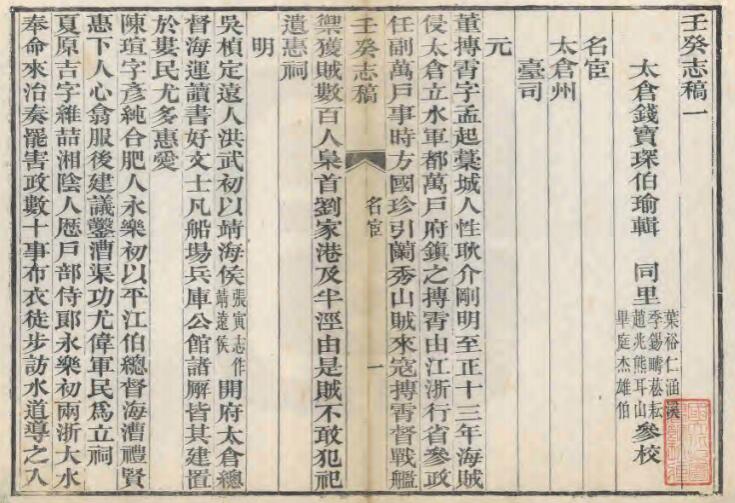 壬癸志稿一
太倉錢寶琛伯瑜輯　同里
葉裕仁涵溪
季錫疇菘耘
趙兆熊耳山
畢庭杰雄伯
參校
名宦
太倉州
臺司
元
董搏霄字孟起藁城人性耿介剛明至正十三年海賊
侵太倉立水軍都萬戶府鎮之搏霄由江浙行省參政
任副萬戶事時方國珍引蘭秀山賊來寇搏霄督戰艦
壬癸志稿　名宦　一
禦獲賊數百人梟首劉家港及半涇由是賊不敢犯祀
遺惠祠
明
吳楨定遠人洪武初以靖海侯張寅志作靖遠侯開府太倉總
督海運讀書好文士凡船場兵庫公館諸廨皆其建置
於婁民尤多惠愛
陳瑄字彥純合肥人永樂初以平江伯總督海漕禮賢
惠下人心翕服後建議鑿漕渠功尤偉軍民爲立祠
夏原吉字維喆湘陰人歷戶部侍郎永樂初兩浙大水
奉命來治奏罷害政數十事布衣徒步訪水道導之入